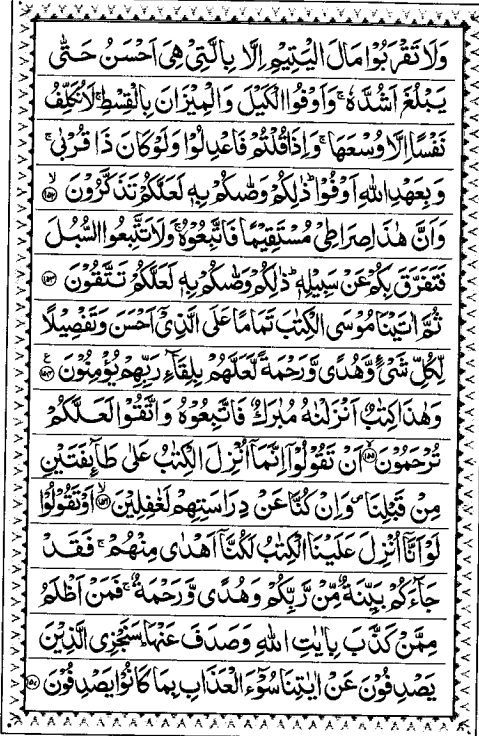 وَلَا تَقْرَبُوْا مَالَ الْيَتِيْمِ اِلَّا بِالَّتِىْ هِىَ اَحْسَنُ حَتّٰى
يَبْلُغَ اَشُدَّهٗ ۚ وَاَوْفُوا الْكَيْلَ وَالْمِيْزَانَ بِالْقِسْطِ ۚ لَا نُكَلِّفُ
نَفْسًا اِلَّا وُسْعَهَا ۚ وَاِذَا قُلْتُمْ فَاعْدِلُوْا وَلَوْ كَانَ ذَا قُرْبٰى ۚ
وَبِعَهْدِ اللّٰهِ اَوْفُوْا ؕ ذٰلِكُمْ وَصّٰىكُمْ بِهٖ لَعَلَّكُمْ تَذَكَّرُوْنَ ۙ ﴿۱۵۲﴾
وَاَنَّ هٰذَا صِرَاطِىْ مُسْتَقِيْمًا فَاتَّبِعُوْهُ ۚ وَلَا تَتَّبِعُوا السُّبُلَ
فَتَفَرَّقَ بِكُمْ عَنْ سَبِيْلِهٖ ؕ ذٰلِكُمْ وَصّٰىكُمْ بِهٖ لَعَلَّكُمْ تَتَّقُوْنَ ﴿۱۵۳﴾
ثُمَّ اٰتَيْنَا مُوْسَى الْكِتٰبَ تَمَامًا عَلَى الَّذِىْۤ اَحْسَنَ وَتَفْصِيْلًا
لِّكُلِّ شَىْءٍ وَّهُدًى وَّرَحْمَةً لَّعَلَّهُمْ بِلِقَآءِ رَبِّهِمْ يُؤْمِنُوْنَ ﴿۱۵۴﴾ ع
وَهٰذَا كِتٰبٌ اَنْزَلْنٰهُ مُبٰرَكٌ فَاتَّبِعُوْهُ وَاتَّقُوْا لَعَلَّكُمْ
تُرْحَمُوْنَ ۙ ﴿۱۵۵﴾ اَنْ تَقُوْلُوْۤا اِنَّمَاۤ اُنْزِلَ الْكِتٰبُ عَلٰى طَآئِفَتَيْنِ
مِنْ قَبْلِنَا ۪ وَاِنْ كُنَّا عَنْ دِرَاسَتِهِمْ لَغٰفِلِيْنَ ۙ ﴿۱۵۶﴾ اَوْ تَقُوْلُوْا
لَوْ اَنَّاۤ اُنْزِلَ عَلَيْنَا الْكِتٰبُ لَكُنَّاۤ اَهْدٰى مِنْهُمْ ۚ فَقَدْ
جَآءَكُمْ بَيِّنَةٌ مِّنْ رَّبِّكُمْ وَهُدًى وَّرَحْمَةٌ ۚ فَمَنْ اَظْلَمُ
مِمَّنْ كَذَّبَ بِاٰيٰتِ اللّٰهِ وَصَدَفَ عَنْهَا ؕ سَنَجْزِى الَّذِيْنَ
يَصْدِفُوْنَ عَنْ اٰيٰتِنَا سُوْٓءَ الْعَذَابِ بِمَا كَانُوْا يَصْدِفُوْنَ ﴿۱۵۷﴾